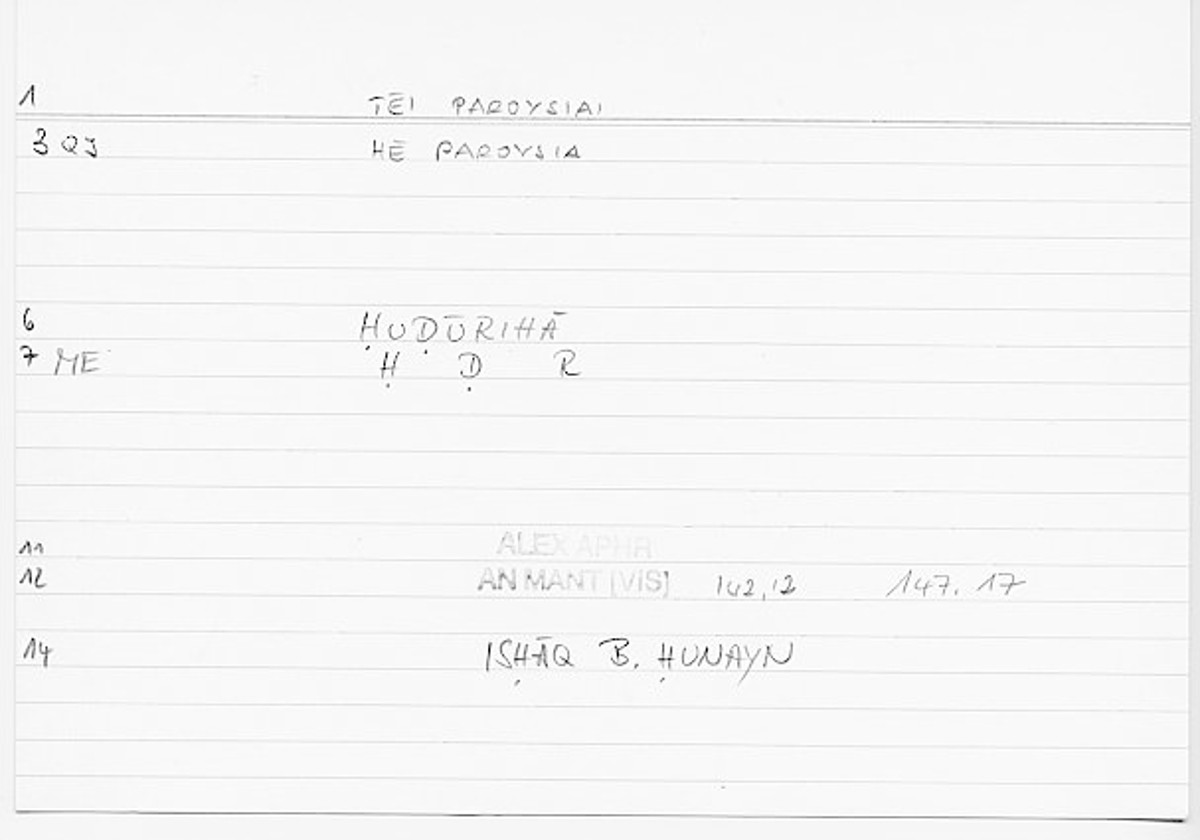 1 TĒI PAROYSIAI
3 QJ HĒ PAROYSIA
6 ḤUḌŪRIHĀ
7 ME Ḥ Ḍ R
11 ALEX APHR
12 AN MANT [VIS] 142,12 147.17
14 ISḤĀQ B. ḤUNAYN